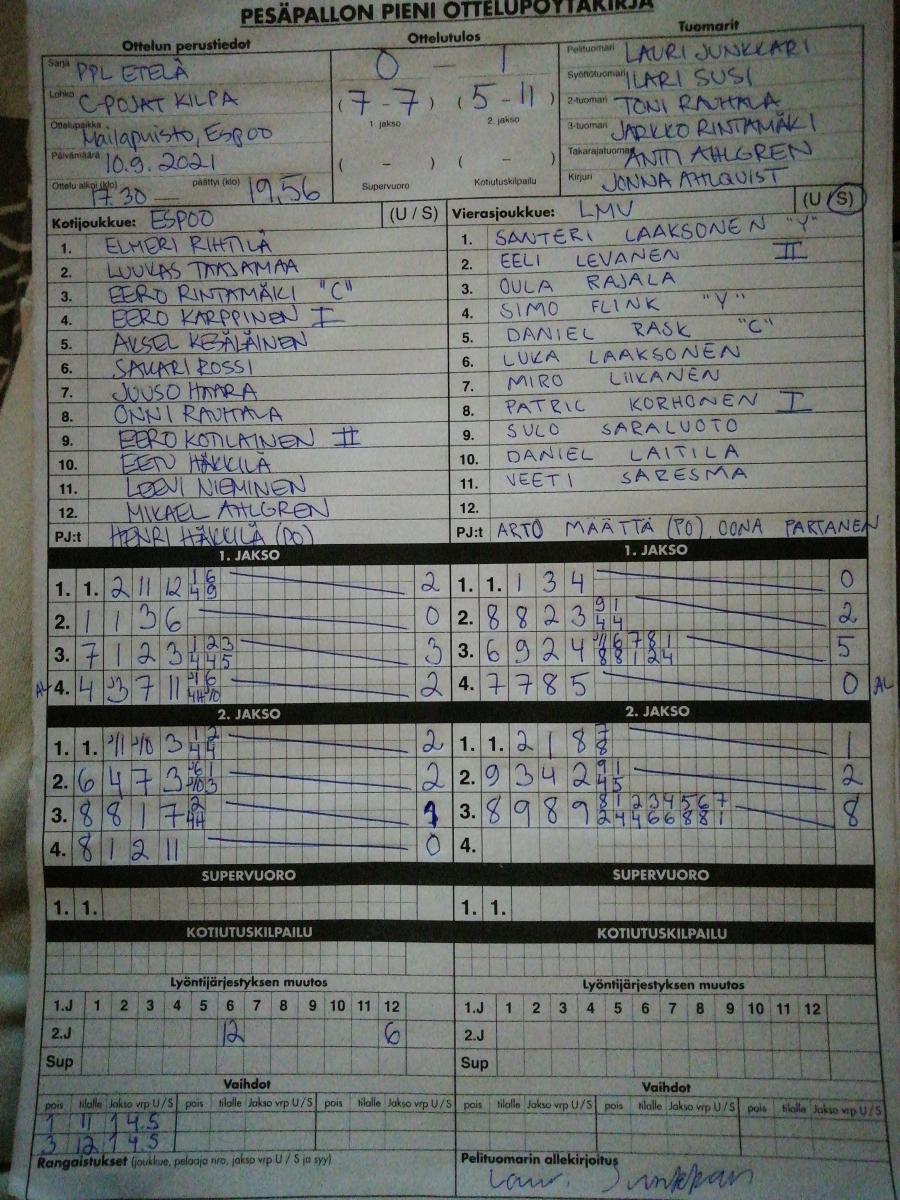 PESÄPALLON PIENI OTTELUPÖYTÄKIRJA
Ottelun perustiedot Ottelutulos Tuomarit
Sarja PPL ETELÄ
Lohko C-POJAT KILPA
Ottelupaikka Mailapuisto, Espoo
Päivämäärä 10.9. 2021
Ottelu alkoi (klo) 17.30 — päättyi (klo) 19.56
0 — 1
(7-7) (5-11)
1. jakso 2. jakso
( - ) ( - )
Supervuoro Kotiutuskilpailu
Pelituomari LAURI JUNKKARI
Syöttötuomari ILARI SUSI
2-tuomari TONI RAUHALA
3-tuomari JARKKO RINTAMÄKI
Takarajatuomari ANTTI AHLGREN
Kirjuri JONNA AHLQUIST
Kotijoukkue: ESPOO (U / S)
1. ELMERI RIHTILÄ
2. LUUKAS TAAJAMAA
3. EERO RINTAMÄKI "C"
4. EERO KARPPINEN I
5. AKSEL KESÄLÄINEN
6. SAKARI ROSSI
7. JUUSO HAARA
8. ONNI RAUHALA
9. EERO KOTILAINEN II
10. EETU HÄKKILÄ
11. LEEVI NIEMINEN
12. MIKAEL AHLGREN
PJ:t HENRI HÄKKILÄ (PO)
Vierasjoukkue: LMV (U / S)
1. SANTERI LAAKSONEN "Y"
2. EELI LEVANEN II
3. OULA RAJALA
4. SIMO FLINK "Y"
5. DANIEL RASK "C"
6. LUKA LAAKSONEN
7. MIRO LIIKANEN
8. PATRIC KORHONEN I
9. SULO SARALUOTO
10. DANIEL LAITILA
11. VEETI SARESMA
12.
PJ:t ARTO MÄÄTTÄ (PO), OONA PARTANEN
1. JAKSO
1. 1. 2 11 12 1 6 2
4 9
2. 1 1 3 6 0
3. 7 1 2 3 1 2 3 3
4 4 5
4. 4 J3 7 11 2
2. JAKSO
1. 1. J11 J10 3 1 2 2
4 4
2. 6 4 7 3 2
3. 8 8 1 7 2 1
44
4. 8 1 2 11 0
SUPERVUORO
1. 1.
KOTIUTUSKILPAILU
1. JAKSO
1. 1. 1 3 4 0
2. 8 8 2 3 9 1 2
4 4
3. 6 9 2 4 J11 6 7 8 1 5
8 8 1 2 4
4. 7 7 8 5 0 AL
2. JAKSO
1. 1. 2 1 8 7 1
8
2. 9 3 4 2 9 1 2
4 5
3. 8 9 8 9 8 1 2 3 4 5 6 7 8
2 4 4 6 6 8 8 1
4.
SUPERVUORO
1. 1.
KOTIUTUSKILPAILU
Lyöntijärjestyksen muutos
1.J 1 2 3 4 5 6 7 8 9 10 11 12
2.J 12 6
Sup
Lyöntijärjestyksen muutos
1.J 1 2 3 4 5 6 7 8 9 10 11 12
2.J
Sup
Vaihdot
pois tilalle Jakso vrp U / S pois tilalle Jakso vrp U / S pois tilalle Jakso vrp U / S
1 11 1 4.5
3 12 1 4.5
Vaihdot
pois tilalle Jakso vrp U / S pois tilalle Jakso vrp U / S pois tilalle Jakso vrp U / S
Rangaistukset (joukkue, pelaaja nro, jakso vrp U / S ja syy)
Pelituomarin allekirjoitus
Lauri Junkkari